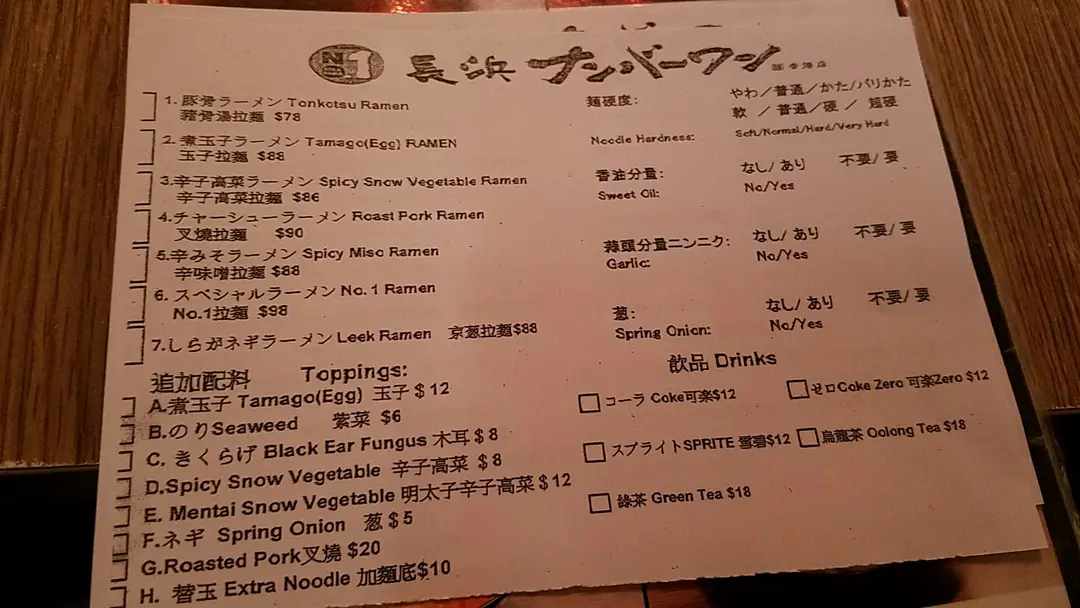 NO 1 長浜 ナンバーワン 香港店
1. 豚骨ラーメン Tonkotsu Ramen
豬骨湯拉麵 $78
2. 煮玉子ラーメン Tamago(Egg) RAMEN
玉子拉麵 $88
3.辛子高菜ラーメン Spicy Snow Vegetable Ramen
辛子高菜拉麵 $86
4.チャーシューラーメン Roast Pork Ramen
叉燒拉麵 $90
5.辛みそラーメン Spicy Miso Ramen
辛味噌拉麵 $88
6. スペシャルラーメン No. 1 Ramen
No.1拉麵 $98
7.しらがネギラーメン Leek Ramen 京葱拉麵$88
麵硬度: やわ/普通/かた/バリかた
軟 / 普通/硬 / 超硬
Noodle Hardness: Soft/Normal/Hard/Very Hard
香油分量: なし/ あり 不要/ 要
Sweet Oil: No/Yes
蒜頭分量ニンニク: なし/ あり 不要/ 要
Garlic: No/Yes
葱: なし/ あり 不要/ 要
Spring Onion: No/Yes
追加配料 Toppings:
A.煮玉子 Tamago(Egg) 玉子 $12
B.のりSeaweed 紫菜 $6
C. きくらげ Black Ear Fungus 木耳 $8
D.Spicy Snow Vegetable 辛子高菜 $8
E. Mentai Snow Vegetable 明太子辛子高菜 $12
F.ネギ Spring Onion 葱 $5
G.Roasted Pork叉燒 $20
H. 替玉 Extra Noodle 加麵底$10
飲品 Drinks
コーラ Coke可楽$12
ゼロCoke Zero 可楽Zero $12
スプライトSPRITE 雪碧$12
烏龍茶 Oolong Tea $18
綠茶 Green Tea $18